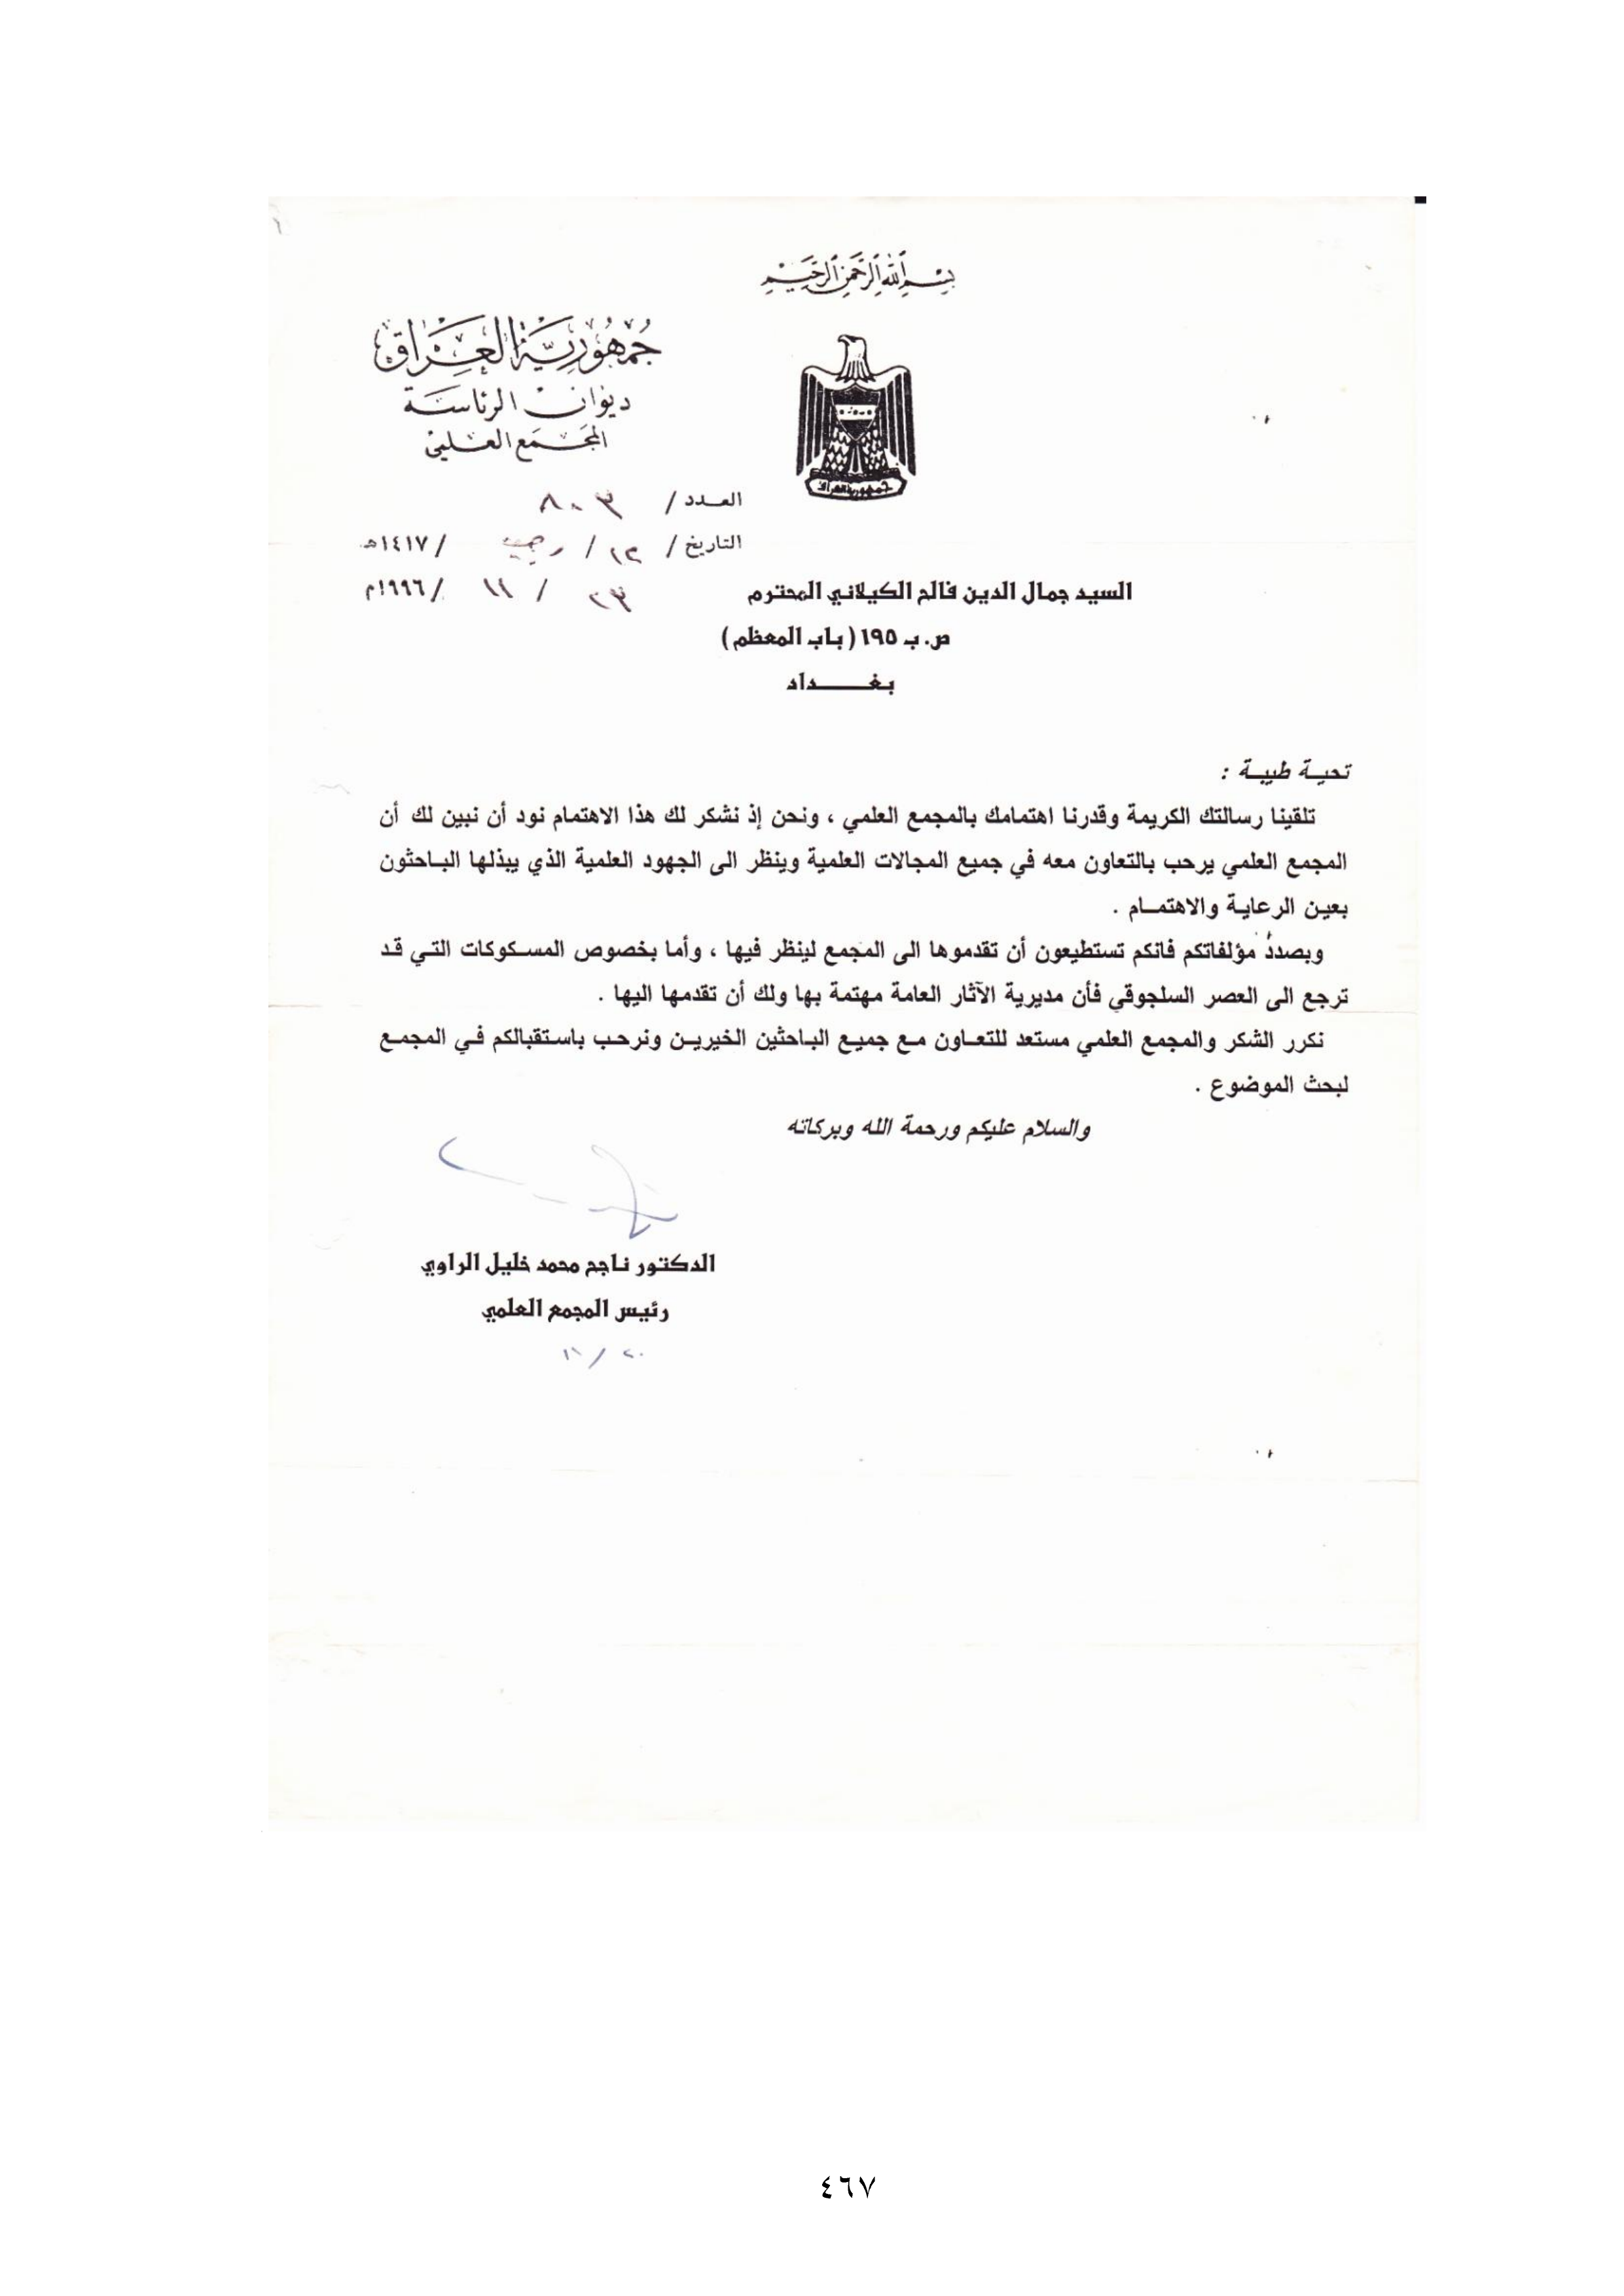 بسم الله الرحمن الرحيم
جمهورية العراق
ديوان الرئاسة
المجمع العلمي
جمهورية العراق
العدد / ٨٠٣
التاريخ / ١٢ / رجب / ١٤١٧هـ
٢٣ / ١١ / ١٩٩٦م
السيد جمال الدين فالح الكيلاني المحترم
ص. ب ١٩٥ ( باب المعظم )
بغــــــداد
تحيـة طيبـة :
تلقينا رسالتك الكريمة وقدرنا اهتمامك بالمجمع العلمي ، ونحن إذ نشكر لك هذا الاهتمام نود أن نبين لك أن
المجمع العلمي يرحب بالتعاون معه في جميع المجالات العلمية وينظر الى الجهود العلمية الذي يبذلها الباحثون
بعين الرعاية والاهتمــام .
وبصدد مؤلفاتكم فانكم تستطيعون أن تقدموها الى المجمع لينظر فيها ، وأما بخصوص المسكوكات التي قد
ترجع الى العصر السلجوقي فأن مديرية الآثار العامة مهتمة بها ولك أن تقدمها اليها .
نكرر الشكر والمجمع العلمي مستعد للتعاون مع جميع الباحثين الخيرين ونرحب باستقبالكم في المجمع
لبحث الموضوع .
والسلام عليكم ورحمة الله وبركاته
الدكتور ناجح محمد خليل الراوي
رئيس المجمع العلمي
٢٠ / ١١
٤٦٧